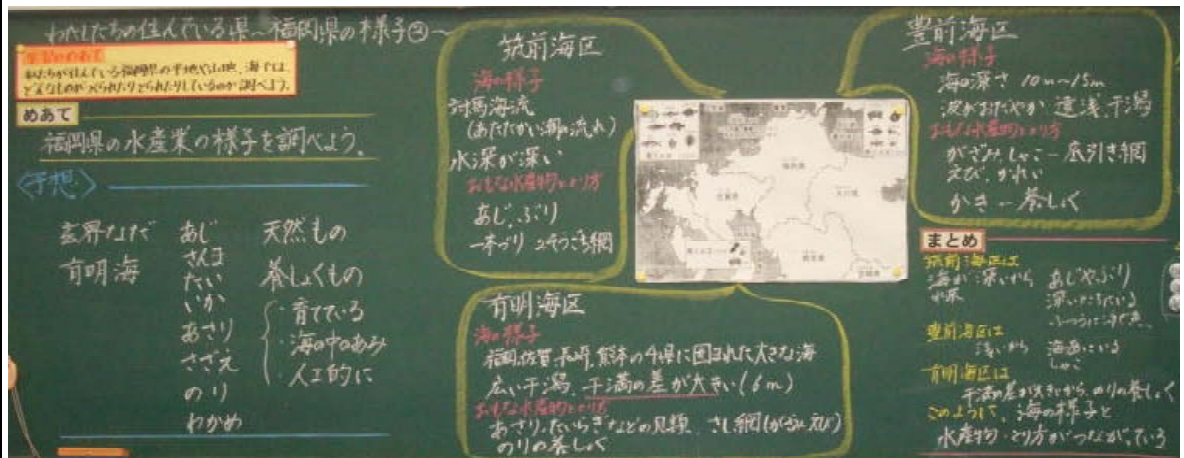 わたしたちの住んでいる県～福岡県の様子②～
私たちが住んでいる福岡県の平地や山地、海では、
どんなものがつくられたりとられたりしているのか調べよう。
めあて
福岡県の水産業の様子を調べよう。
〈予想〉
玄界なだ
有明海
あじ
さんま
たい
いか
あさり
さざえ
のり
わかめ
天然もの
養しょくもの
・育てている
・海の中のあみ
・人工的に
筑前海区
海の様子
対馬海流
(あたたかい海の流れ)
水深が深い
おもな水産物ととり方
あじ、ぶり
一本づり 2そうごち網
有明海区
海の様子
福岡、佐賀、長崎、熊本の4県に囲まれた大きな海
広い干潟、干満の差が大きい(6m)
おもな水産物ととり方
あさり、たいらぎなどの貝類 さし網(がざみ、えび)
のりの養しょく
豊前海区
海の様子
海の深さ 10m～15m
波がおだやか 遠浅、干潟
おもな水産物ととり方
がざみ、しゃこ－底引き網
えび、かれい
かき－養しょく
まとめ
筑前海区は
海が深いから あじやぶり
水深
豊前海区は
浅いから
有明海区は
干満の差が大きいから、のりの養しょく
このように、海の様子と
水産物・とり方がつながっている